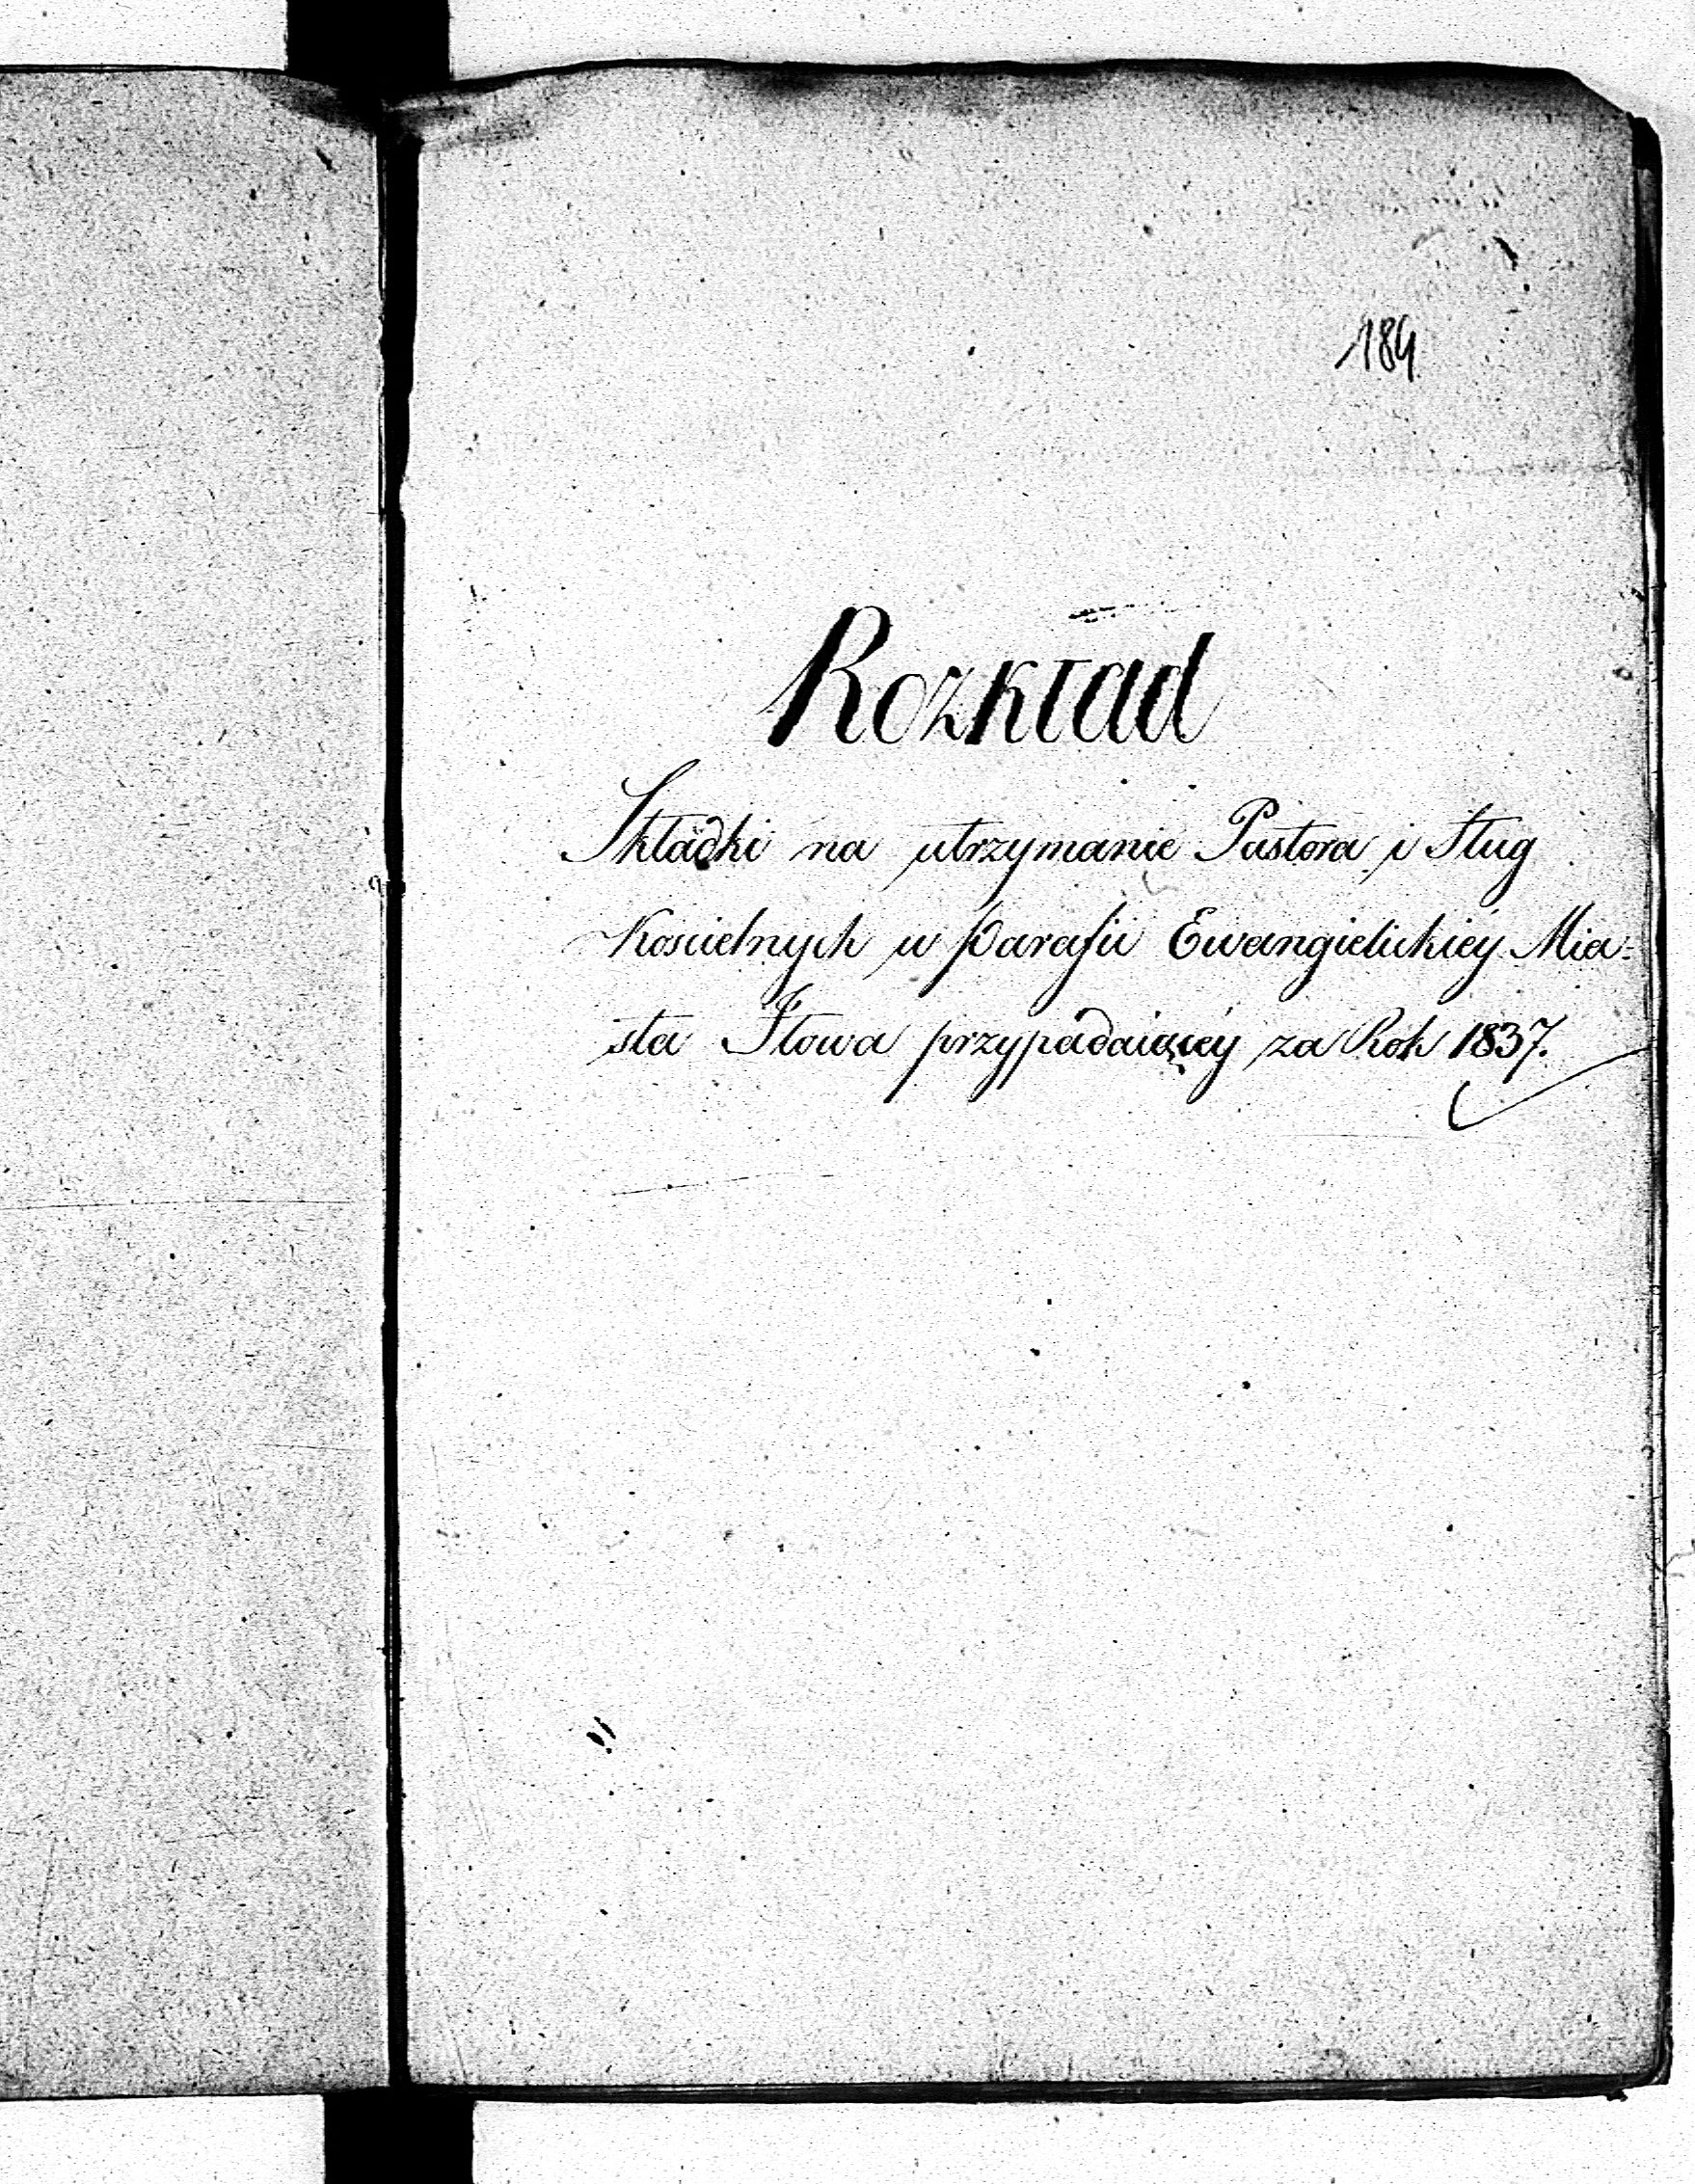 184
Rozkład
Składki na utrzymanie Pastora i Sług
Kościelnych w parafii Ewangielickiéy Mia-
sta Iłowa przypadaiącéy za Rok 1837.